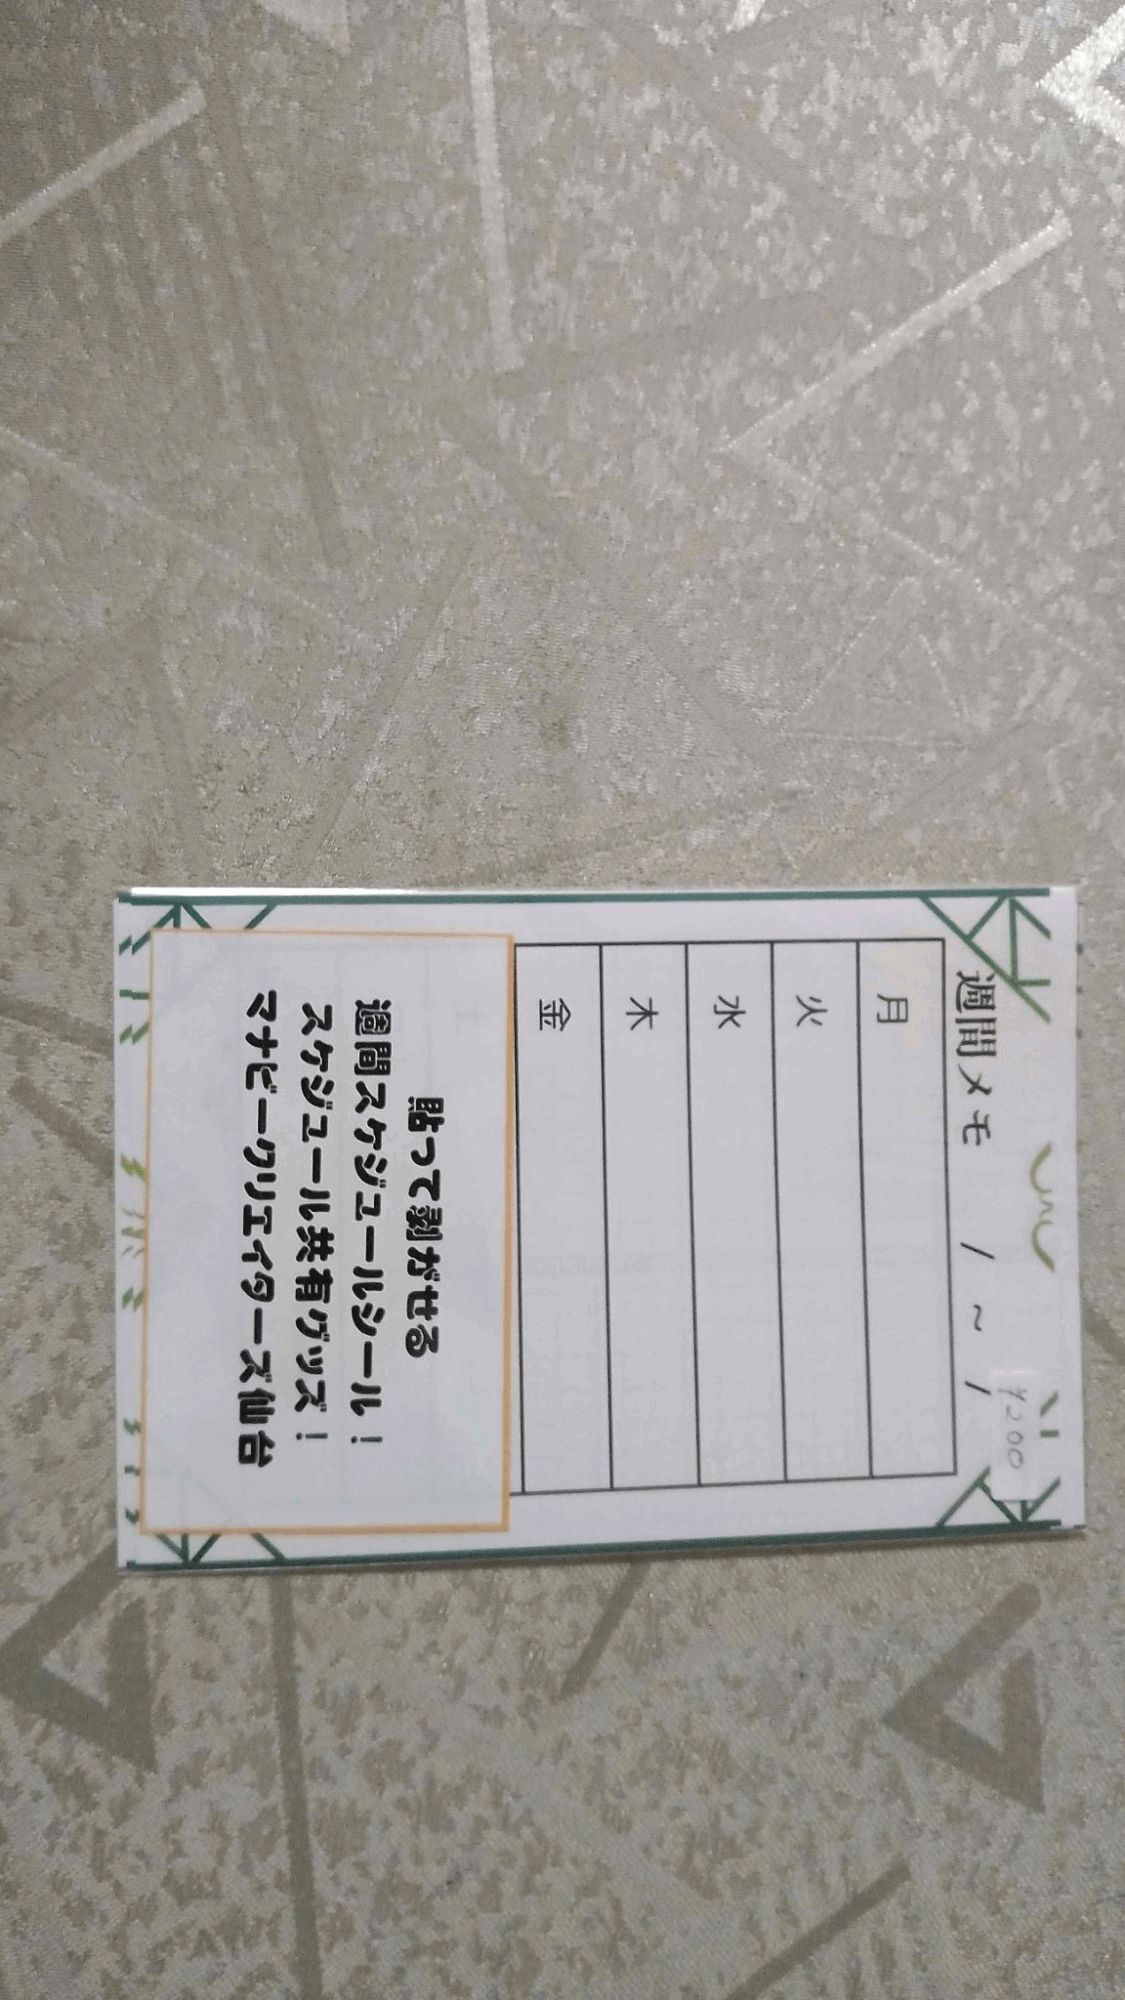 ¥200
週間メモ / ~ /
月
火
水
木
金
貼って剥がせる
週間スケジュールシール！
スケジュール共有グッズ！
マナビークリエイターズ仙台